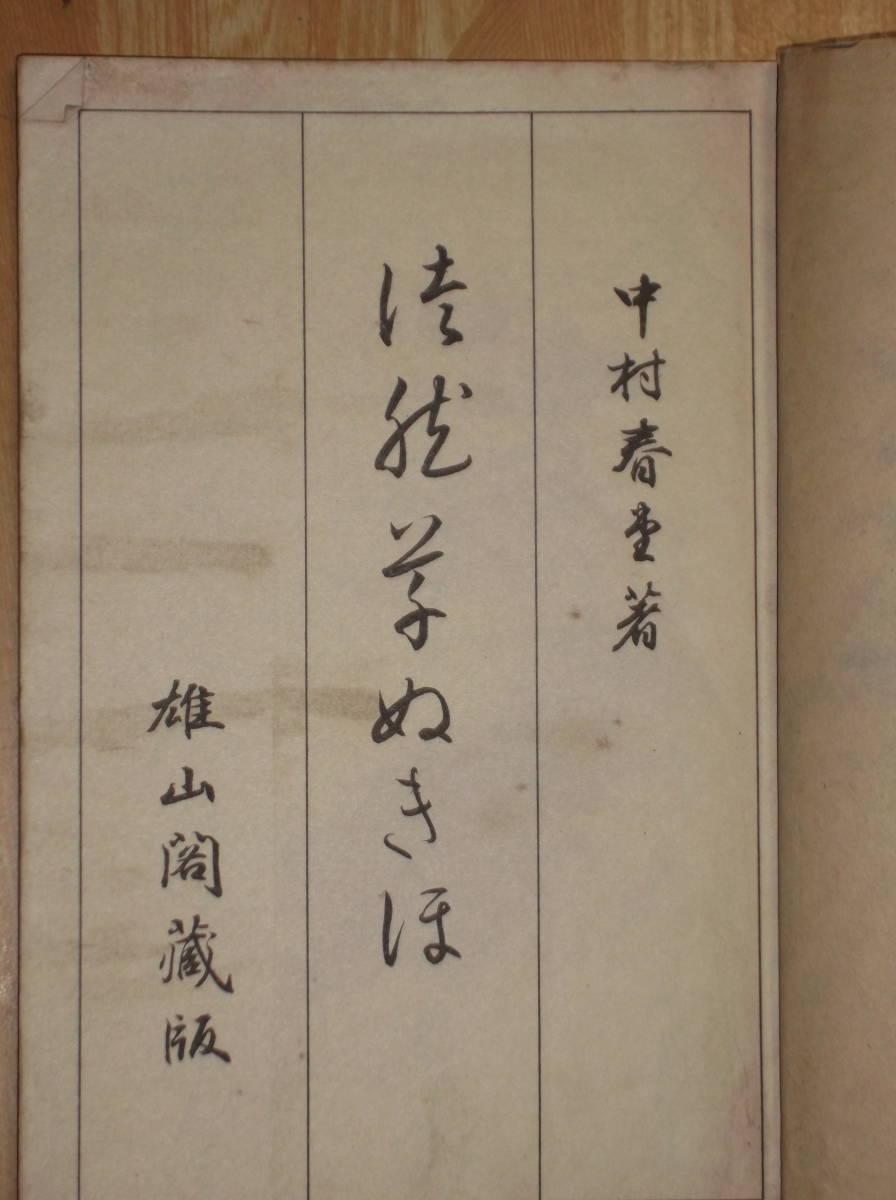 中村春堂著
徒然草ぬきほ
雄山閣藏版